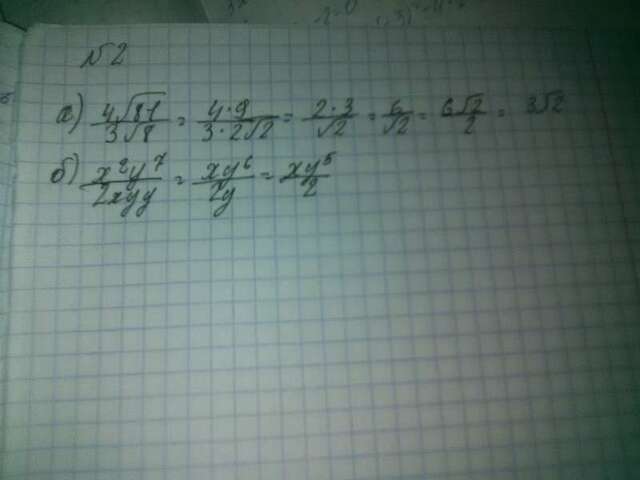 №2
а) 4√81 / 3√8 = 4·9 / 3·2√2 = 2·3 / √2 = 6 / √2 = 6√2 / 2 = 3√2
б) x²y⁷ / 2xyy = xy⁶ / 2y = xy⁵ / 2